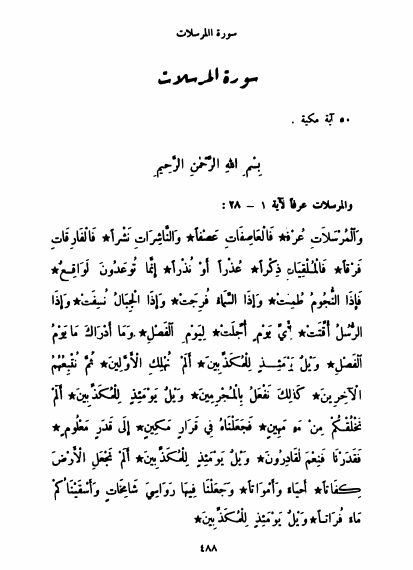 سورة المرسلات
سورة المرسلات
٥٠ آية مكية .
بِسْمِ اللهِ الرَّحْمٰنِ الرَّحِيمِ
والمرسلات عرفاً لآية ١ – ٢٨ :
وَٱلْمُرْسَلَاتِ عُرْفاً★ فَالْعَاصِفَاتِ عَصْفاً★ وَالنَّاشِرَاتِ نَشْراً★ فَالْفَارِقَاتِ
فَرْقاً★ فَالْمُلْقِيَاتِ ذِكْراً★ عُذْراً أَوْ نُذْراً★ إِنَّمَا تُوعَدُونَ لَوَاقِعٌ★
فَإِذَا النُّجُومُ طُمِسَتْ★ وَإِذَا السَّمَاءُ فُرِجَتْ★ وَإِذَا الْجِبَالُ نُسِفَتْ★ وَإِذَا
الرُّسُلُ أُقِّتَتْ★ لِأَيِّ يَوْمٍ أُجِّلَتْ★ لِيَوْمِ الْفَصْلِ★ وَمَا أَدْرَاكَ مَا يَوْمُ
الْفَصْلِ★ وَيْلٌ يَوْمَئِذٍ لِلْمُكَذِّبِينَ★ أَلَمْ نُهْلِكِ الْأَوَّلِينَ★ ثُمَّ نُتْبِعُهُمُ
الْآخِرِينَ★ كَذَلِكَ نَفْعَلُ بِالْمُجْرِمِينَ★ وَيْلٌ يَوْمَئِذٍ لِلْمُكَذِّبِينَ★ أَلَمْ
نَخْلُقْكُمْ مِنْ مَاءٍ مَهِينٍ★ فَجَعَلْنَاهُ فِي قَرَارٍ مَكِينٍ★ إِلَى قَدَرٍ مَعْلُومٍ★
فَقَدَرْنَا فَنِعْمَ الْقَادِرُونَ★ وَيْلٌ يَوْمَئِذٍ لِلْمُكَذِّبِينَ★ أَلَمْ نَجْعَلِ الْأَرْضَ
كِفَاتاً★ أَحْيَاءً وَأَمْوَاتاً★ وَجَعَلْنَا فِيهَا رَوَاسِيَ شَامِخَاتٍ وَأَسْقَيْنَاكُمْ
مَاءً فُرَاتاً★ وَيْلٌ يَوْمَئِذٍ لِلْمُكَذِّبِينَ★
٤٨٨